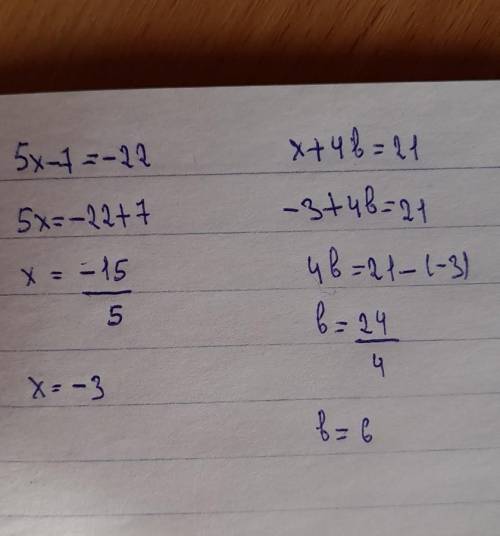 5x-7=-22
5x=-22+7
x = -15/5
x = -3
x+4b=21
-3+4b=21
4b=21-(-3)
b=24/4
b=6